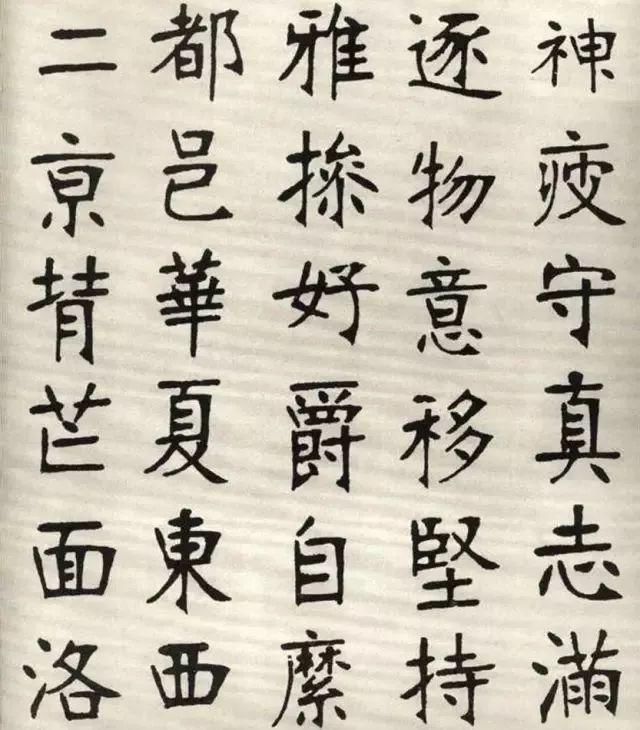 神疲守真志滿
逐物意移堅持
雅操好爵自縻
都邑華夏東西
二京背芒面洛